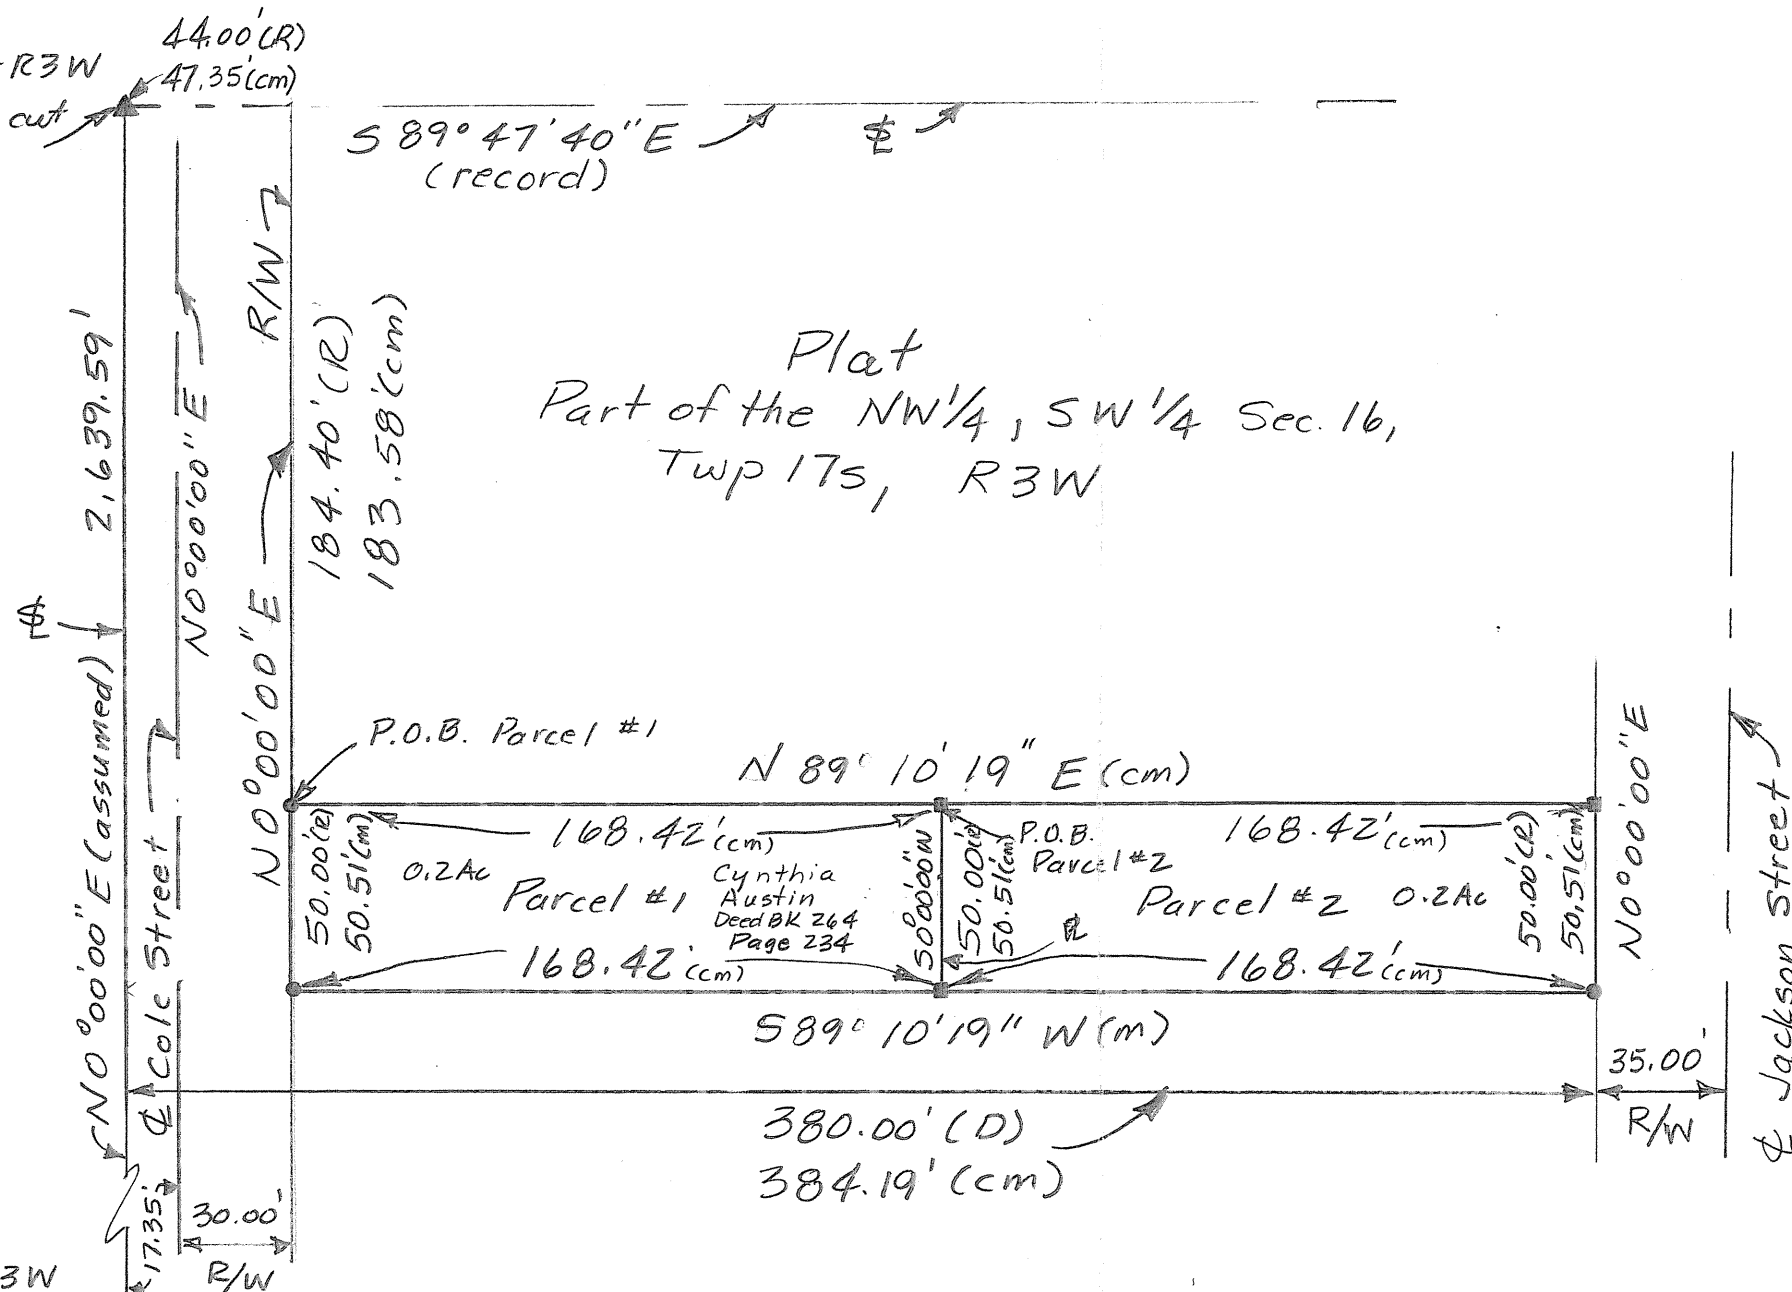 44.00'(R)
R3W
47.35'(cm)
cut
S 89° 47' 40" E
(record)
℄
R/W
2,639.59'
N0°00'00"E
N0°00'00"E
184.40'(R)
183.58'(cm)
Plat
Part of the NW 1/4, SW 1/4 Sec. 16,
Twp 17S, R3W
N0°00'00"E (assumed)
℄ Cole Street
P.O.B. Parcel #1
N 89° 10' 19" E (cm)
50.00'(R)
50.51'(cm)
168.42'(cm)
0.2Ac
Parcel #1
Cynthia
Austin
Deed BK 264
Page 234
168.42'(cm)
S0°00'00"W
50.00'(R)
50.51'(cm)
P.O.B.
Parcel #2
168.42'(cm)
Parcel #2
0.2Ac
168.42'(cm)
50.00'(R)
50.51'(cm)
N0°00'00"E
℄ Jackson Street
S 89° 10' 19" W (m)
35.00'
R/W
380.00' (D)
384.19' (cm)
17.35'
30.00'
R/W
3W